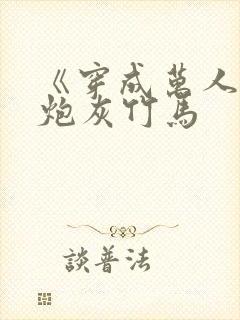 《穿成萬人
炮灰竹馬
談普法